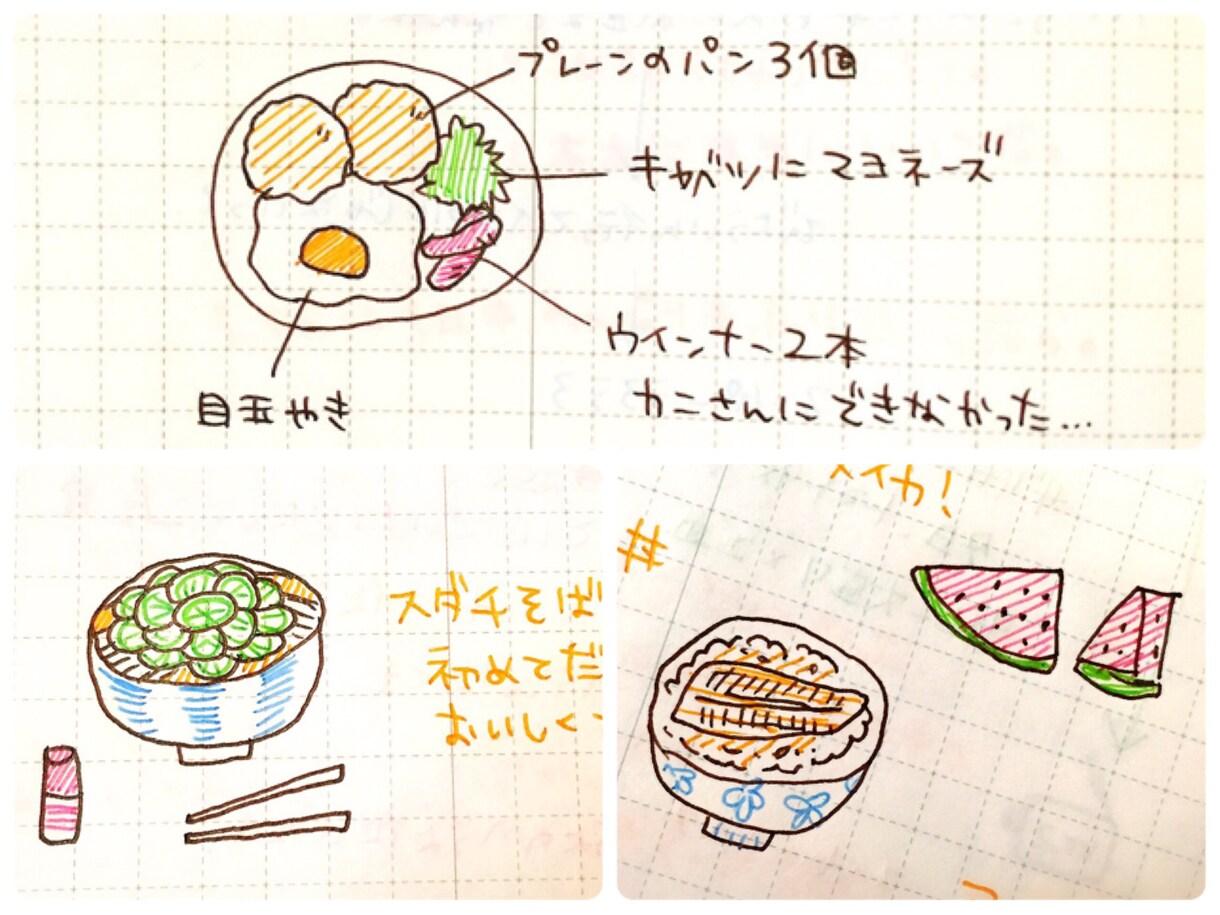 プレーンのパン3個
キャベツにマヨネーズ
ウインナー2本
カニさんにできなかった…
目玉やき
スダチそば
初めてだ
おいしく
イカ!
丼